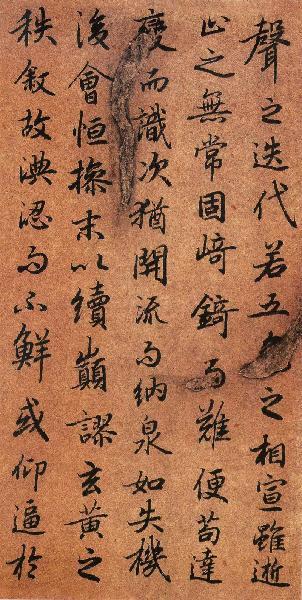 聲之迭代若五色之相宣雖逝
止之無常固崎錡而難便苟達
變而識次猶開流而納泉如失機
後會恒操末以續巔謬玄黃之
秩叙故淟涊而不鮮或仰逼於